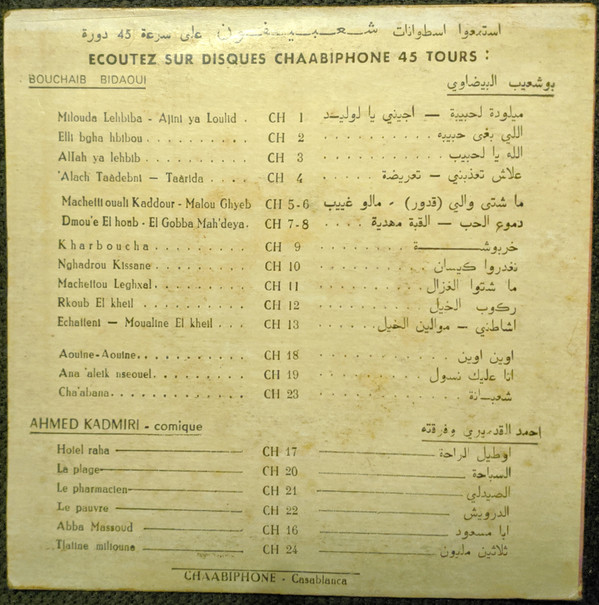 استمعوا اسطوانات شعبيفون على سرعة 45 دورة
ECOUTEZ SUR DISQUES CHAABIPHONE 45 TOURS :
BOUCHAIB BIDAOUI بوشعيب البيضاوي
Milouda Lehbiba - Ajini ya Loulid . CH 1 ميلودة لحبيبة — اجيني يا لوليد
Elli bgha hbibou . . . . . . . . . . CH 2 اللي بغى حبيبه
Allah ya lehbib . . . . . . . . . . CH 3 الله يا لحبيب
'Alach Taâdebni - Taârida . . . . CH 4 علاش تعذبني - تعريضة
Machetti ouali Kaddour - Malou Ghyeb CH 5-6 ما شتى والي (قدور) - مالو غييب
Dmou'e El hoab - El Gobba Mah'deya. CH 7-8 دموع الحب - القبة مهدية
Kharboucha . . . . . . . . . CH 9 خربوشة
Nghadrou Kissane . . . . . . . . CH 10 نغدروا كيسان
Machettou Leghzal . . . . . . . . CH 11 ما شتوا الغزال
Rkoub El kheil . . . . . . . . . CH 12 ركوب الخيل
Echatteni — Moualine El kheil . . . CH 13 اشاطني - موالين الخيل
Aouine-Aouine. . . . . . . . . . CH 18 اوين اوين
Ana 'aleik nseouel. . . . . . . . CH 19 انا عليك نسول
Cha'abana. . . . . . . . . . . . CH 23 شعبانة
AHMED KADMIRI - comique احمد القدميري وفرقته
Hotel raha CH 17 اوطيل الراحة
La plage CH 20 السباحة
Le pharmacien CH 21 الصيدلي
Le pauvre CH 22 الدرويش
Abba Massoud CH 16 ابا مسعود
Tlatine milioune CH 24 ثلاثين مليون
CHAABIPHONE - Casablanca